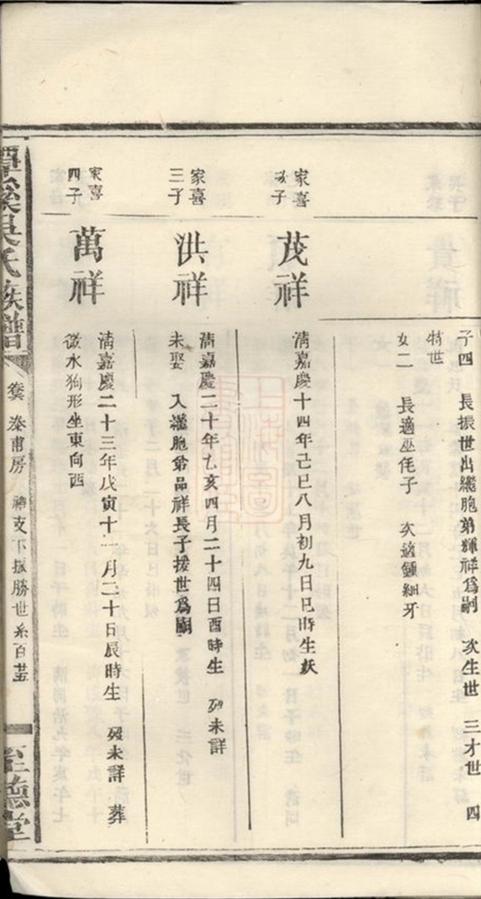 子四 長振世出繼胞弟輝祥為嗣 次生世 三才世 四
特世
女二 長適巫侘子 次適鍾細牙
家喜
次子
茂祥
清嘉慶十四年己巳八月初九日巳時生妖
家喜
三子
洪祥
清嘉慶二十年乙亥四月二十四日酉時生 歿未詳
未娶 入繼胞弟品祥長子援世為嗣
家喜
四子
萬祥
清嘉慶二十三年戊寅十一月二十日辰時生 歿未詳 葬
微水狗形坐東向西
吳氏族譜
泰甫房
勝世系
至德堂